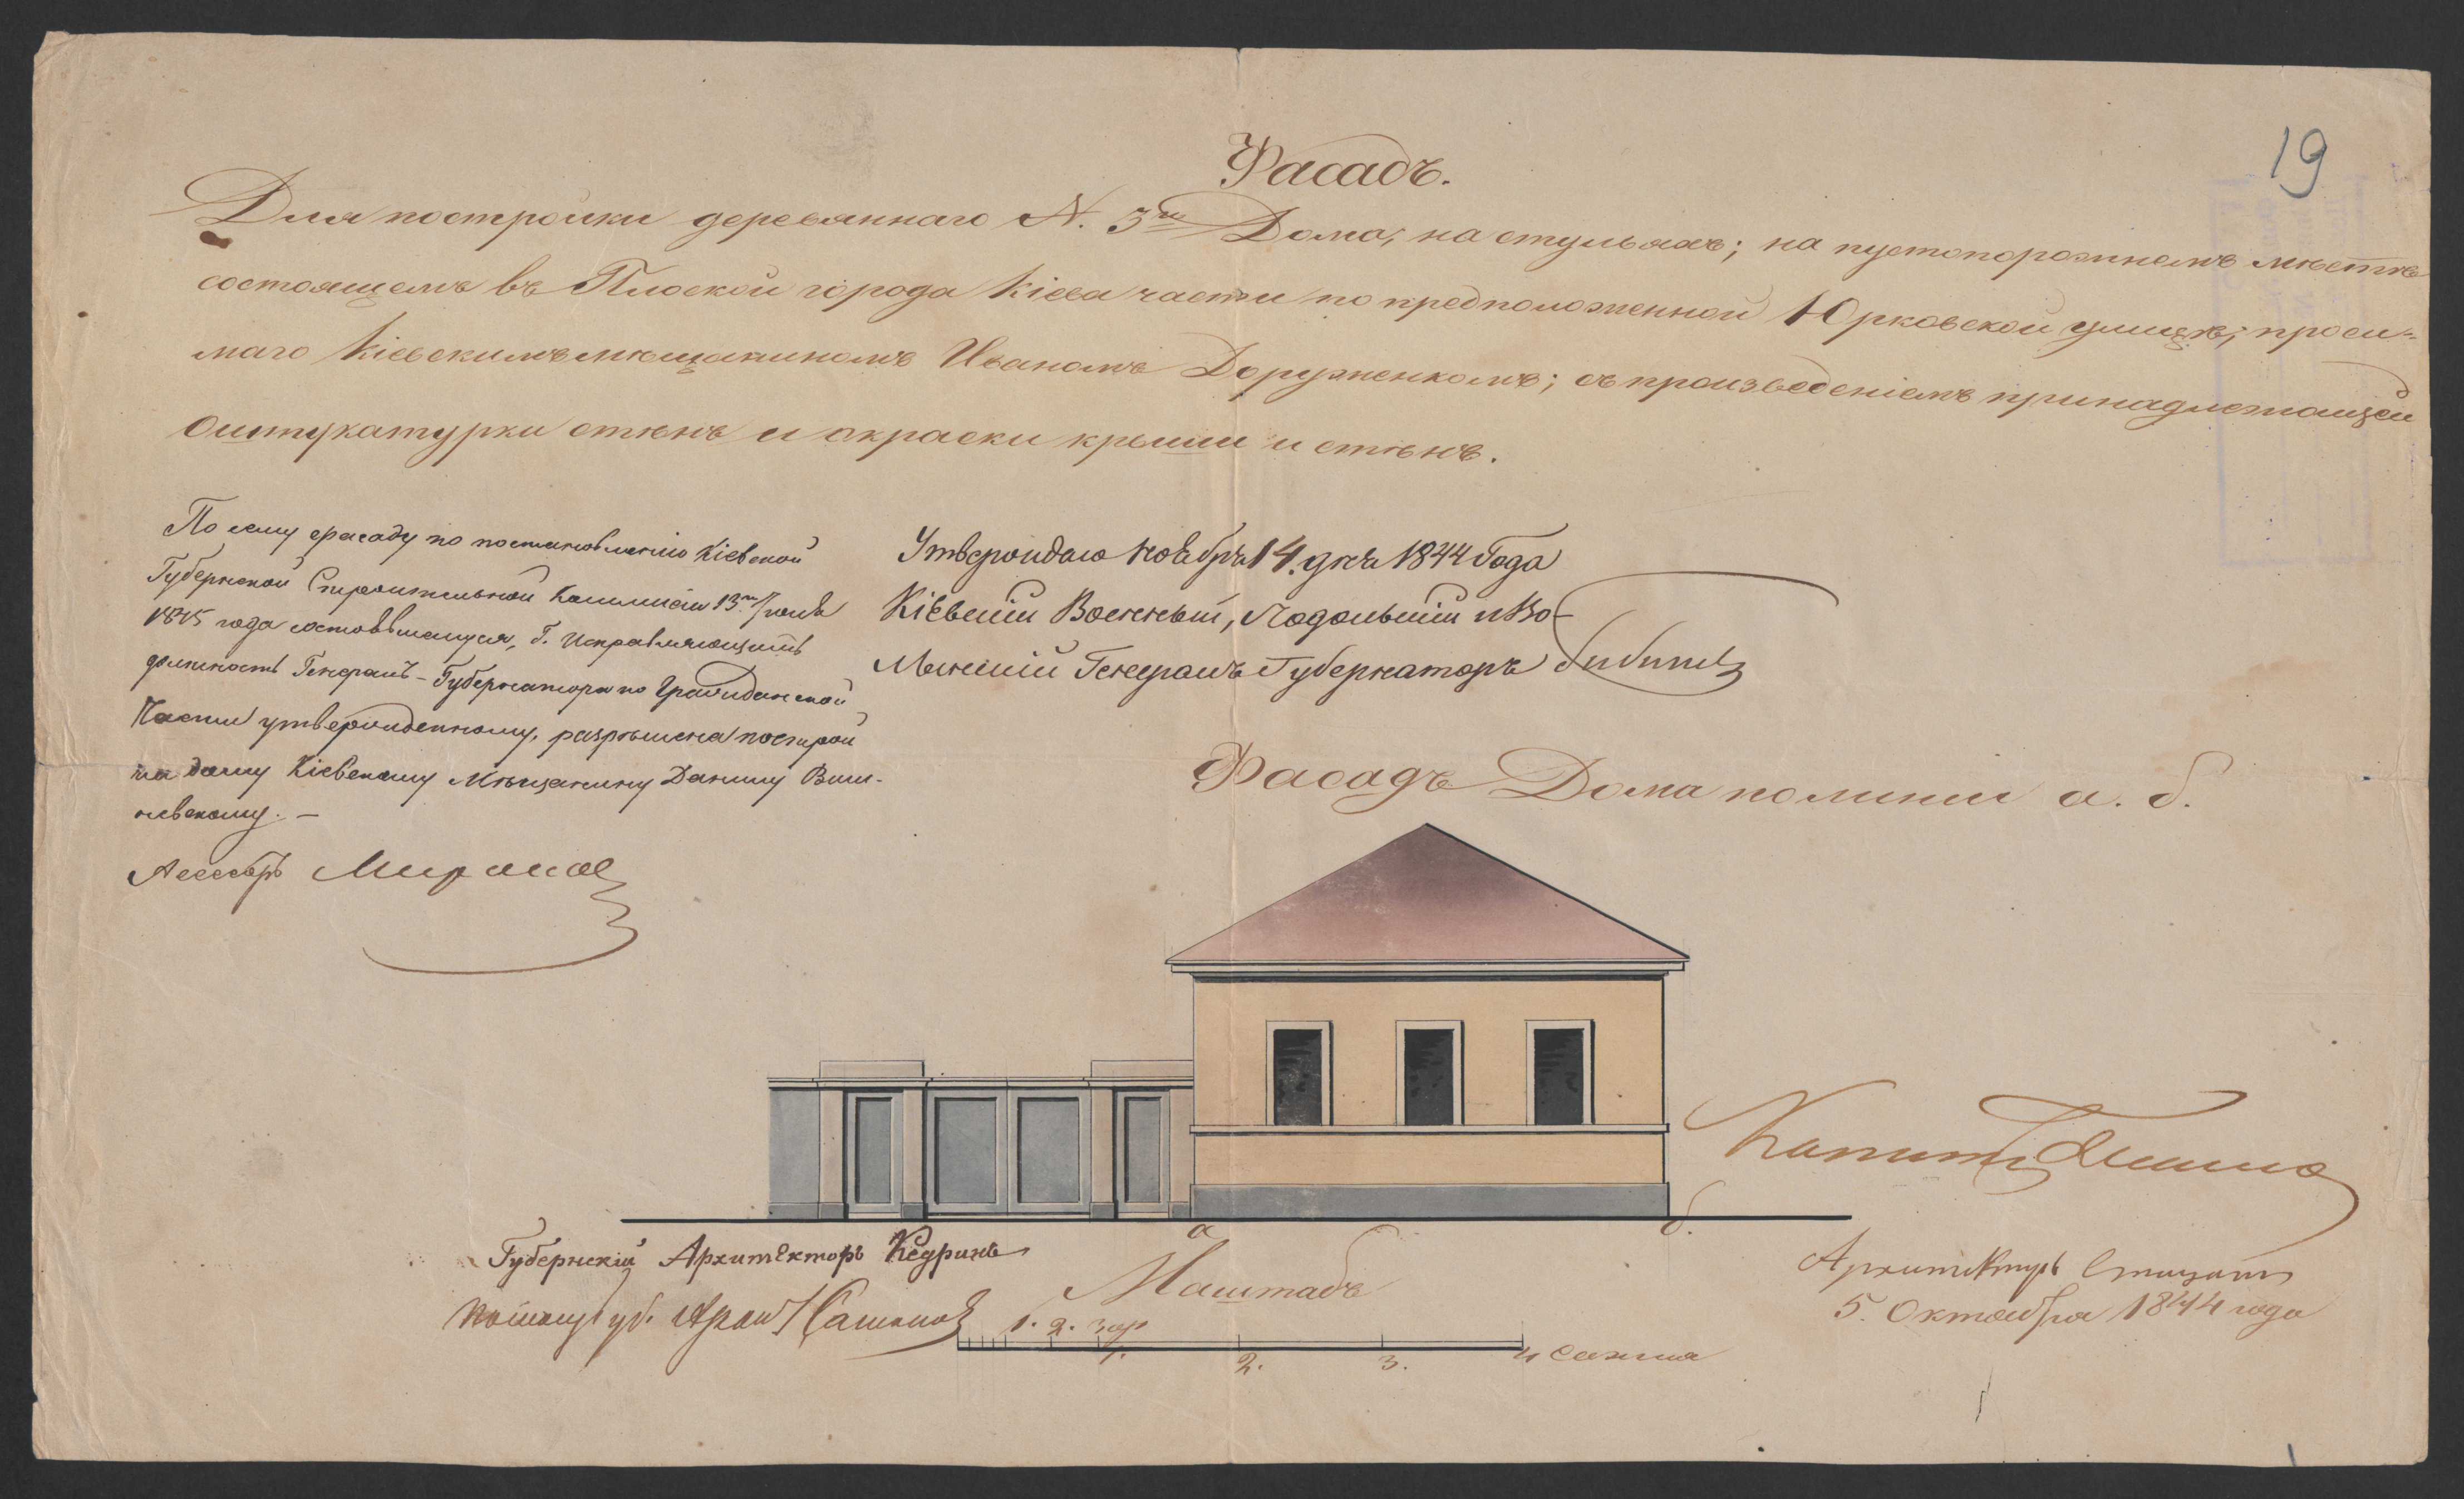 19
Фасадъ.
Для постройки деревяннаго N. 3го Дома, на стульяхъ; на пустопорожнемъ мѣстѣ
состоящемъ въ Плоской города Кіева части по предположенной Юрковской улицѣ; проси-
маго Кіевскимъ мѣщаниномъ Иваномъ Доруженкомъ; съ произведеніемъ принадлежащей
оштукатурки стѣнъ и окраски крыши и стѣнъ.
По сему фасаду по постановленію Кіевской
Губернской Строительной Коммисіи 13го
1845 года состоявшемуся, Г. Исправляющимъ
должность Генералъ-Губернатора по Гражданской
Части утвержденному, разрѣшена построй
ка дому Кіевскому Мѣщанину Данилу Виш-
невскому. –
Асессоръ
Утверждаю Ноября 14. дня 1844 Года
Кіевскій Военный, Подольскій и Во-
лынскій Генералъ Губернаторъ Бибиковъ
Фасадъ Дома по линіи а. б.
а
б.
Капит
Губернскій Архитекторъ Кедринъ
Архитекторъ
5. Октября 1844 года
Маштабъ
1. 2. 3 ар
1. 2. 3. 4 Сажня